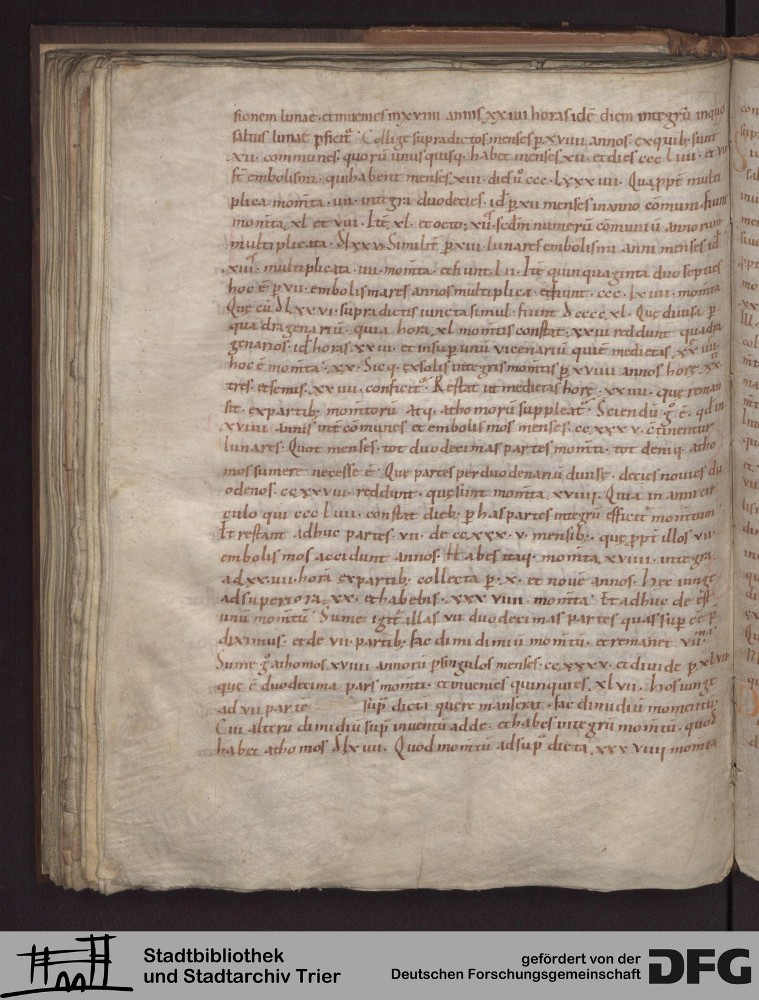 sionem lunae. et inuenies in xviiii annis xxiiii horas idē diem integrū in quo
saltus lunae pficit᷒. Collige supradictos menses p xviiii annos. ex quib; sunt
xii. communes. quorū unus quisq; habet menses xii. et dies ccc liiii. et vii
st̄ embolismi. qui habent menses xiii. dies ů ccc. lxxx iiii. Qua ppt̄ multi
plica momta. iiii. integra duodecies. id ̄ p xii menses in anno cōmuni. fiunt
momta xl et viii. Itē xl. et octo; xii scdm numerū cōmuniū annorum
multiplicata. dlxxvi. Similit p xiii lunares embolismi anni menses id
xiii. multiplicata. iiii. momta. et fiunt. lii. Itē quinquaginta duo septies
hoc ē p vii. embolismares annos multiplica. et fiunt. ccc. lxiiii. momta
Que cū dlxxvi. supra dictis iuncta simul. fiunt dcccc. xl. Que diuisa p
quadragenariū. quia hora xl momtis constat. xxiii reddunt quadra
genarios. id horas xxiii. et insup unū uicenariū qui ē medietas xx iiii.
hoc ē momta. xx. Sic q; ex solis integris momtis p xviiii annos horę xx
tres. et semis. xx iiii. conficit᷒. Restat ut medietas horę. xx iiii. que reman
sit. ex partib; momtorū atq; athomorū suppleat᷒. Sciendū gͦ ē. qd in
xviiii. annis int̄ cōmunes et embolismos menses. cc xxx v. c̄tinentur
lunares. Quot menses. tot duodecimas partes momti. tot deniq; atho
mos sumere necesse ē. Que partes per duodenariū diuise. decies nouies du
odenos. cc xxviii. reddunt. que sunt momta xviiii. Quia in anni cir
culo qui ccc liiii. constat dieb; p has partes integrū efficit᷒ momtum
Et restant adhuc partes. vii. de cc xxx. v. mensib;. que ppt̄ illos vii
embolismos accidunt annos. Habes itaq; momta xviiii. integra
ad xx. iiii. horā ex partib; collecta p. x. et nouē annos. Hec iunge
ad superiora xx. et habebis. xxx viiii. momta. Et adhuc de est
unū momtū. Sume igit᷒ illas vii duodecimas partes quas sup
diximus. et de vii. partib; fac dimidiū momtū. et remanet
Sume gͦ athomos xviiii annorū p singulos menses. cc xxx v. et diuide p xlvii
que ē duodecima pars momti. et inuenies quinquies. xl vii. hos iunge
ad vii parte sup dicta quere manserat. fac dimidiū momentū
Cui alterū dimidiū sup inuentū adde. et habes integrū momtū. quod
habet athomos dlx iiii. Quod momtū ad sup dicta. xxx viiii momta
Stadtbibliothek
und Stadtarchiv Trier
gefördert von der
Deutschen Forschungsgemeinschaft
DFG